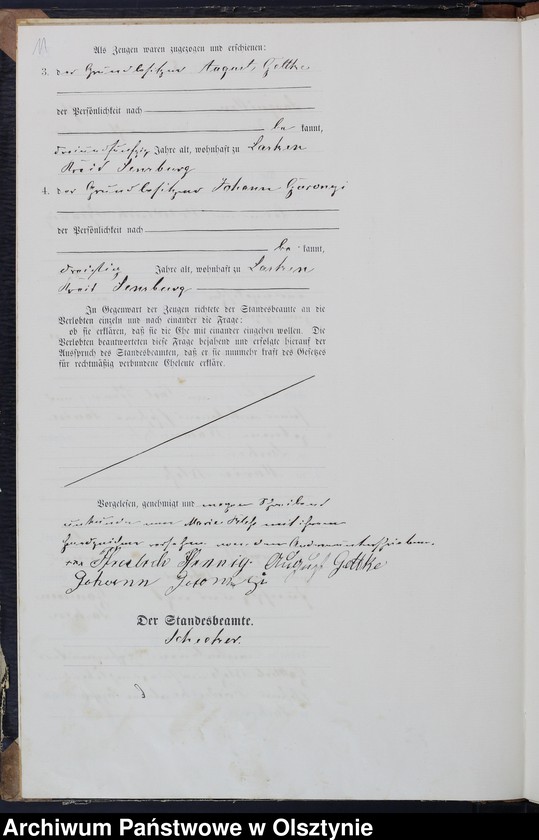 11
Als Zeugen waren zugezogen und erschienen:
3. der Grundbesitzer August Gottke
der Persönlichkeit nach
be kannt,
dreiundfünfzig Jahre alt, wohnhaft zu
Kreis Sensburg
4. der Grundbesitzer Johann
der Persönlichkeit nach
be kannt,
dreißig Jahre alt, wohnhaft zu
Kreis Sensburg
In Gegenwart der Zeugen richtete der Standesbeamte an die
Verlobten einzeln und nach einander die Frage:
ob sie erklären, daß sie die Ehe mit einander eingehen wollen. Die
Verlobten beantworteten diese Frage bejahend und erfolgte hierauf der
Ausspruch des Standesbeamten, daß er sie nunmehr kraft des Gesetzes
für rechtmäßig verbundne Eheleute erkläre.
Vorgelesen, genehmigt und wegen Schreibens
unkunde von Marie mit ihrem
Handzeichen versehen, von den Anderen unterschrieben.
+++ August Gottke
Johann
Der Standesbeamte.
Archiwum Państwowe w Olsztynie